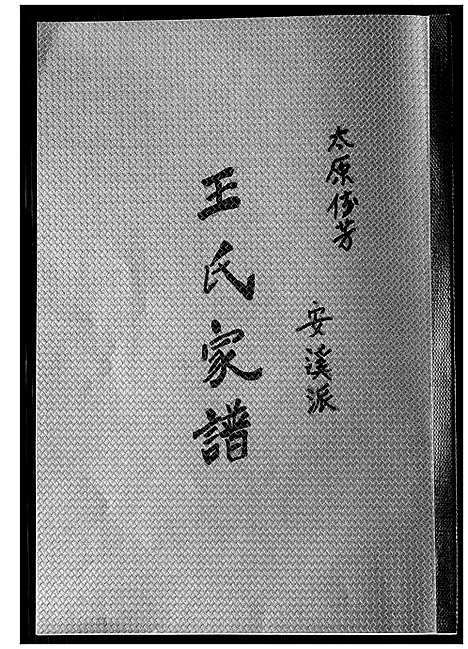 太原傳芳
安溪派
王氏家譜